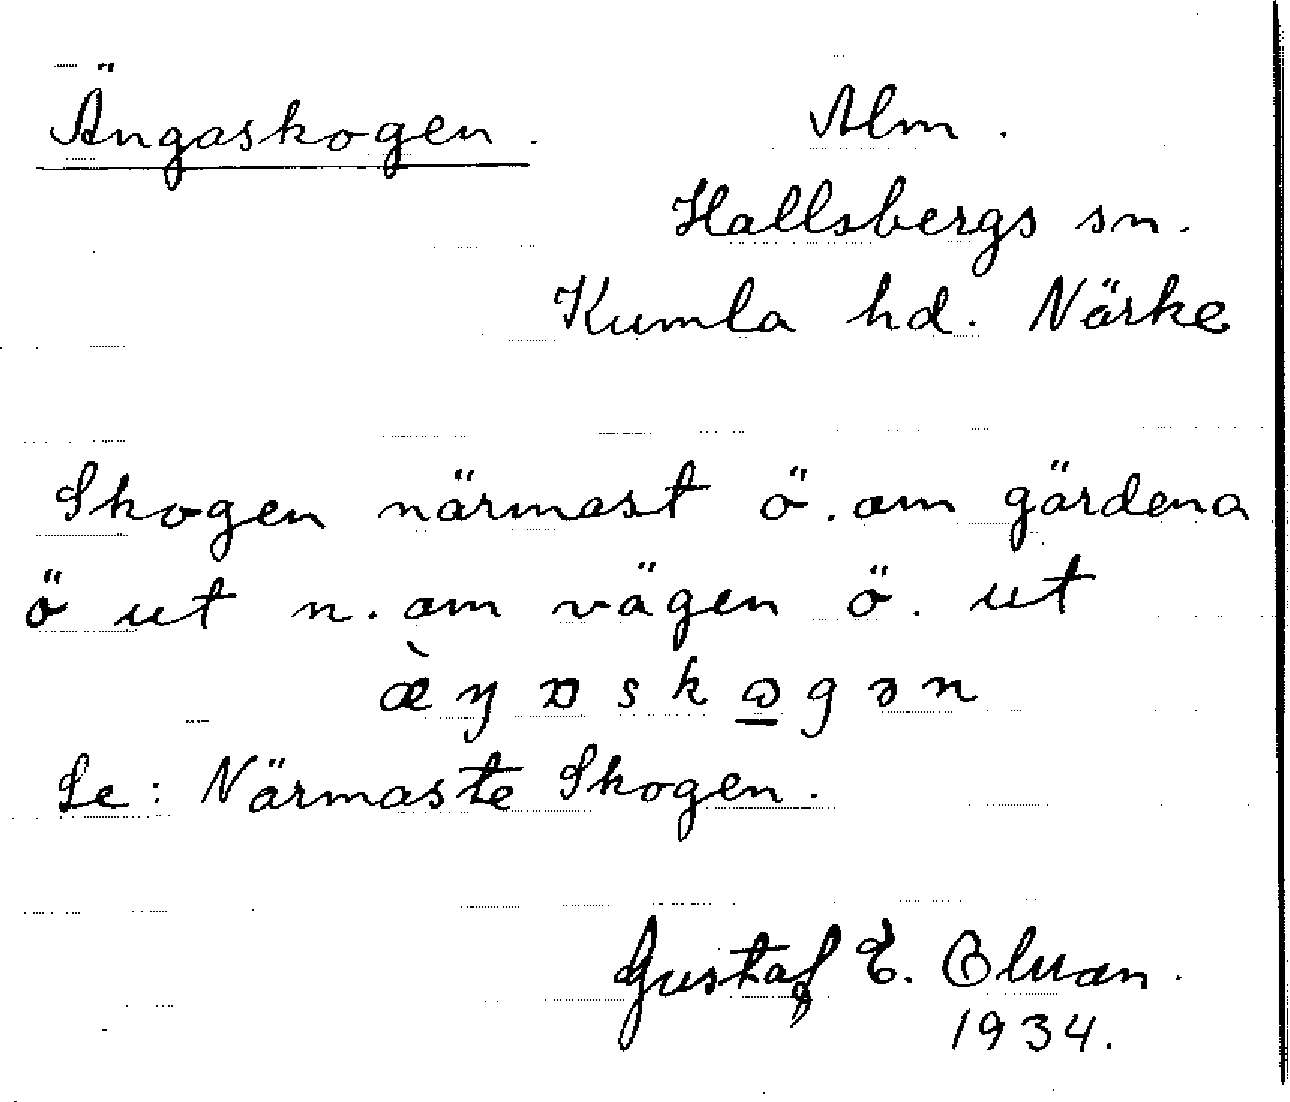 Ängaskogen. Alm.
Hallsbergs sn.
Kumla hd. Närke
Skogen närmast ö. om gärdena
ö ut n. om vägen ö. ut
æ̀ŋɒskɷ̱gən
Se: Närmaste Skogen.
Gustaf E.
1934.